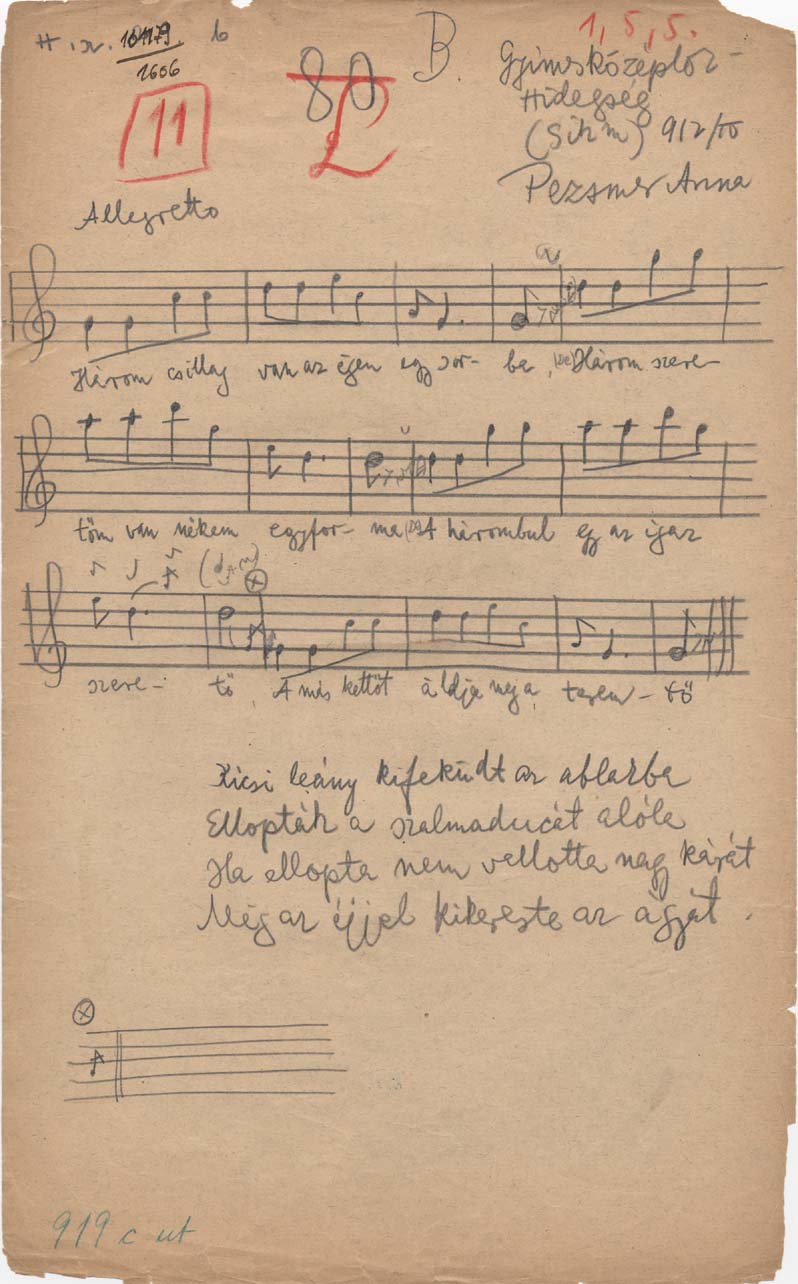 1, 5, 5.
B.
80
11
1606
Gyimesközéplok-
Hidegség
Allegretto
Három csillag van az égen egy sor- be, (De) Három szere-
tőm van nékem egyfor- ma (De) A hárombul egy az igaz
szere- tő, A más kettőt áldja meg a terem- tő
Kicsi leány kifeküdt az ablakba
Ellopták a szalmaducát alóla
Ha ellopta nem vallotta nagy kárát
Még az éjjel kikereste az ágyát.
919 c ut